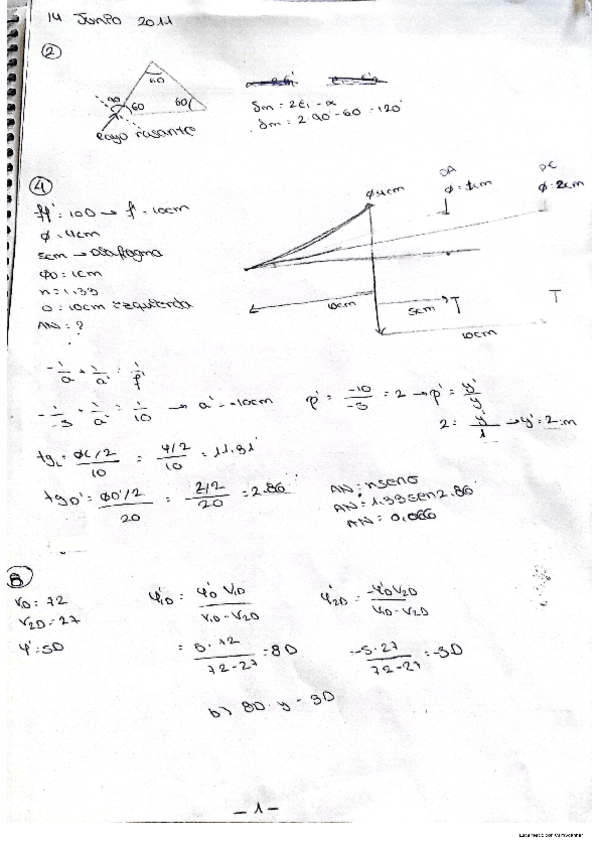 14 Junio 2011
2
60
90 60 60
rayo rasante
δm = 2εi - α
δm = 2·90 - 60 = 120°
4
ff' = 100 → f' = 10cm
ϕ = 4cm
5cm → Diafragma
ϕD = 1cm
n = 1.33
O = 10cm izquierda
AN = ?
ϕ4cm
DA
ϕ = 1cm
D'C
ϕ = 2cm
10cm
5cm
T
T
10cm
-1/a + 1/a' = 1/f'
-1/-5 + 1/a' = 1/10 → a' = -10cm
β' = -10/-5 = 2 → β' = y'/y
2 = y'/1 → y' = 2cm
tgL = ϕL/2 / 10 = 4/2 / 10 = 11.31°
tgD' = ϕD'/2 / 20 = 2/2 / 20 = 2.86°
AN = n senσ
AN = 1.33 sen 2.86
AN = 0.066
8
V1D = 72
V2D = 27
φ' = 5D
φ'1D = φ'D V1D / V1D - V2D
= 5·72 / 72-27 = 8D
φ'2D = -φ'D V2D / V1D - V2D
-5·27 / 72-27 = -3D
b) 8D y -3D
- 1 -